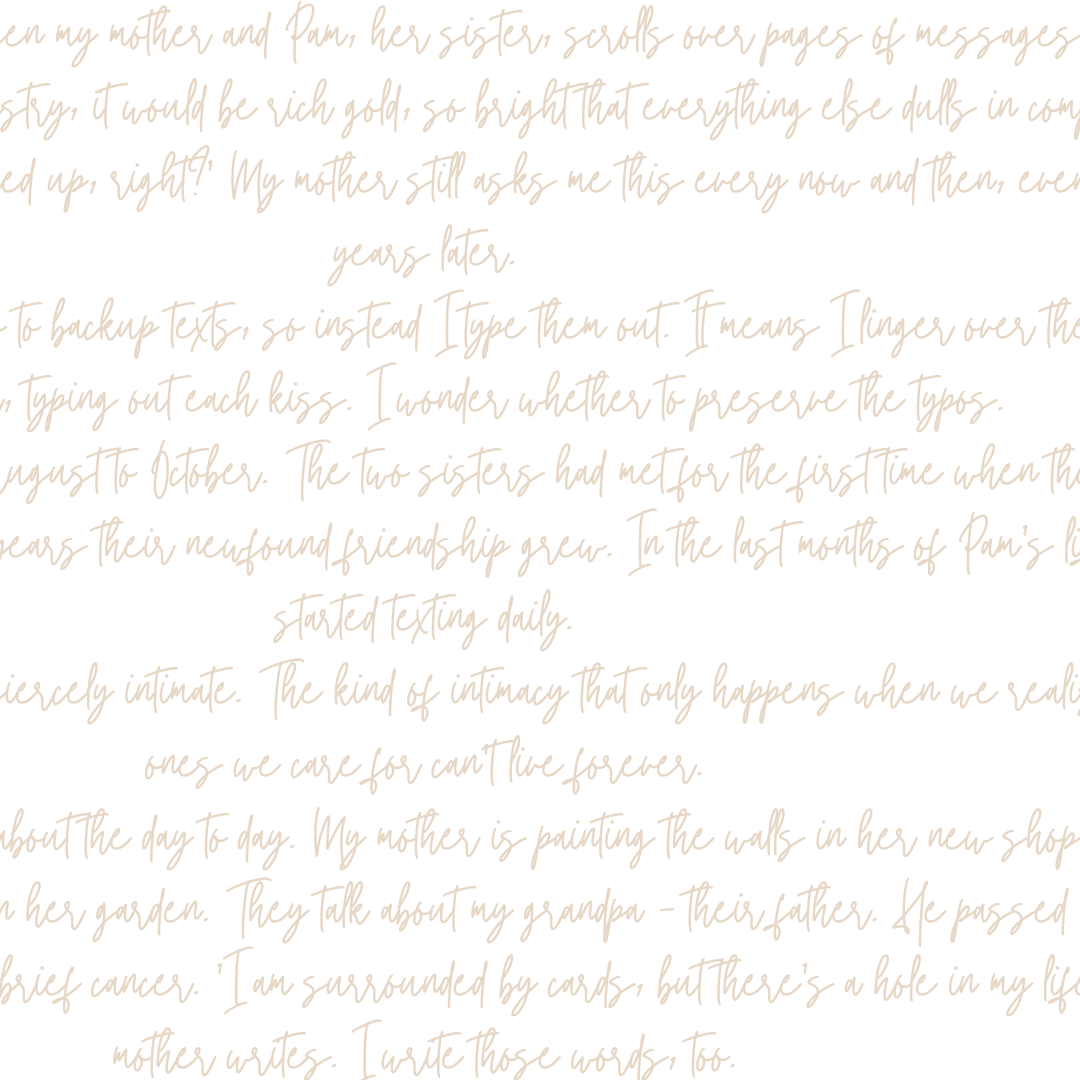 en my mother and Pam, her sister, scrolls over pages of messages
stry, it would be rich gold, so bright that everything else dulls in comp
ed up, right?' My mother still asks me this every now and then, even
years later.
to backup texts, so instead I type them out. It means I linger over the
, typing out each kiss. I wonder whether to preserve the typos.
ugust to October. The two sisters had met for the first time when the
years their newfound friendship grew. In the last months of Pam's li
started texting daily.
iercely intimate. The kind of intimacy that only happens when we reali
ones we care for can't live forever.
about the day to day. My mother is painting the walls in her new shop
n her garden. They talk about my grandpa - their father. He passed
brief cancer. 'I am surrounded by cards, but there's a hole in my life
mother writes. I write those words, too.